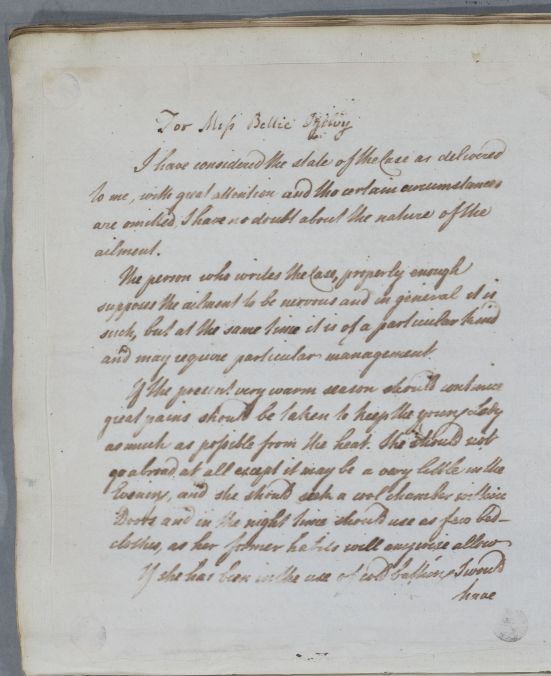 For Miss Bettie
I have considered the state of the Case as delivered
to me, with great attention and tho certain circumstances
are omitted, I have no doubt about the nature of the
ailment.
The person who writes the Case, properly enough
supposes the ailment to be nervous and in general it is
such, but at the same time it is of a particular kind
and may require particular management.
If the present very warm season should continue
great pains should be taken to keep the young Lady
as much as possible from the heat. She should not
go abroad at all except it may be a very little in the
Evening, and she should seek a cool chamber within
Doors and in the night time should use as few bed-
clothes, as her former habits will anywise allow
If she has been in the use of cold bathing I would
have